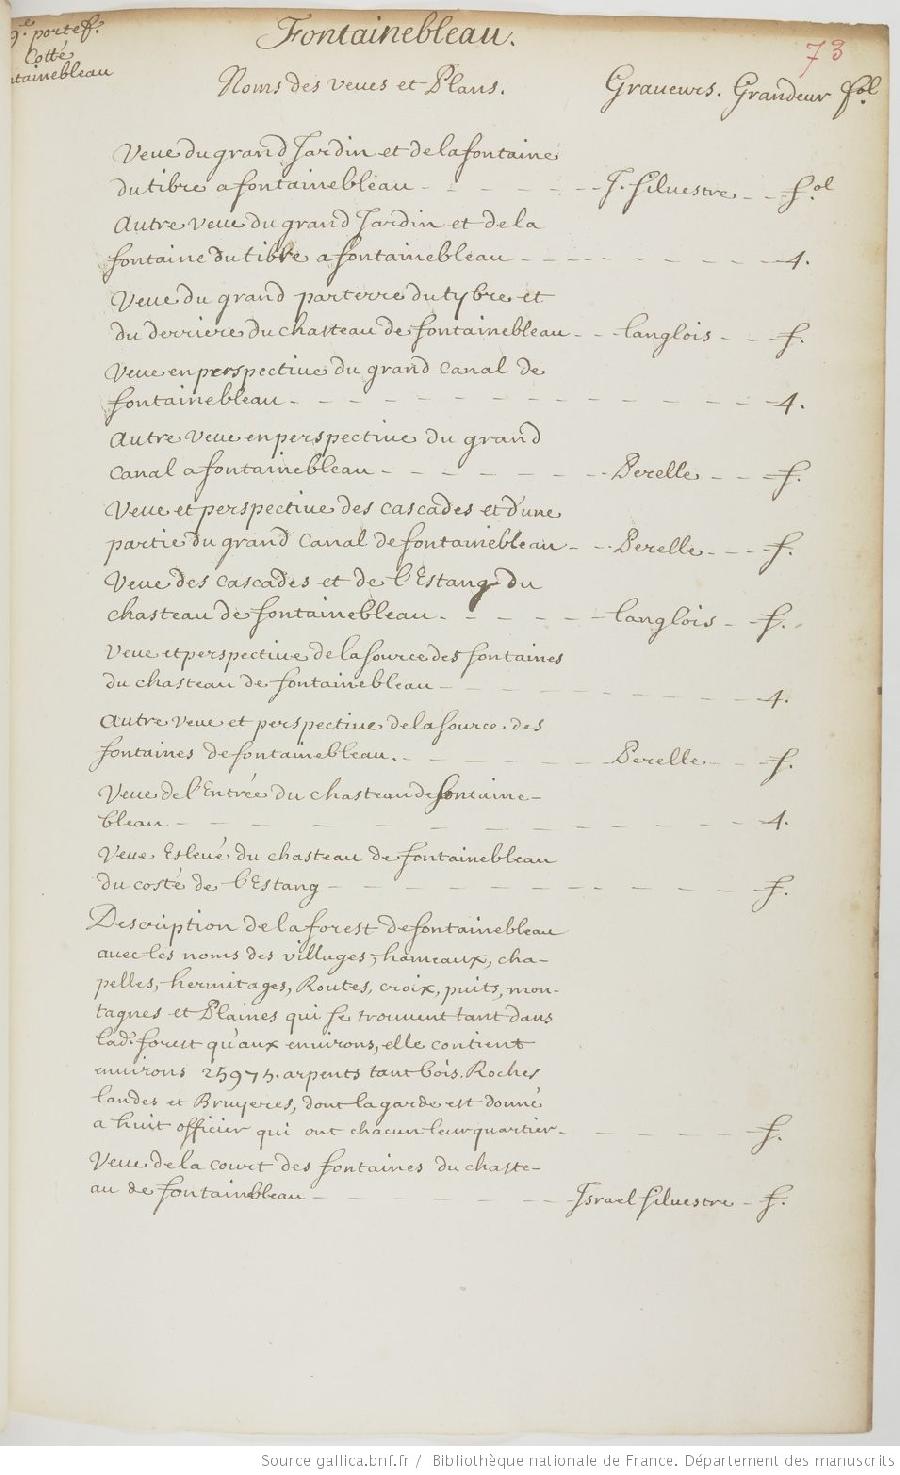 9.e portef.
Cotté
ntainebleau
Fontainebleau.
73
Noms des veues et Plans. Graueurs. Grandeur fol.
Veue du grand Jardin et de la fontaine
du tibre a fontainebleau - - - - - - J. Siluestre - - f.ol
Autre veue du grand Jardin et de la
fontaine du tibre a fontainebleau - - - - - - - - 4.
Veue du grand parterre du tybre et
du derriere du chasteau de fontainebleau - - Langlois - - f.
Veue en perspectiue du grand canal de
fontainebleau - - - - - - - - - - - - - - - 4.
Autre veue en perspectiue du grand
canal a fontainebleau - - - - - - - Perelle - - - f.
Veue et perspectiue des cascades et d'une
partie du grand canal de fontainebleau - - Perelle - - - f.
Veue des cascades et de l'Estang du
chasteau de fontainebleau. - - - - - Langlois - - f.
Veue et perspectiue de la source des fontaines
du chasteau de fontainebleau - - - - - - - - - 4.
Autre veue et perspectiue de la source des
fontaines de fontainebleau. - - - - - - Perelle - - - f.
Veue de l'Entrée du chasteau de fontaine-
bleau - - - - - - - - - - - - - - - - 4.
Veue Esleué du chasteau de fontainebleau
du costé de l'Estang - - - - - - - - - - - - f.
Description de la forest de fontainebleau
auec les noms des villages, hameaux, cha-
pelles, hermitages, Routes, croix, puits, mon-
tagnes et Plaines qui se trouuent tant dans
lad. forest qu'aux enuirons, elle contient
enuirons 25975. arpents tant bois, Roches
landes et Bruyeres, dont la garde est donné
a huit officier qui ont chacun leur quartier - - - - - f.
Veue de la court des fontaines du chaste-
au de fontainbleau - - - - - - - Israel Siluestre - f.
Source gallica.bnf.fr / Bibliothèque nationale de France. Département des manuscrits